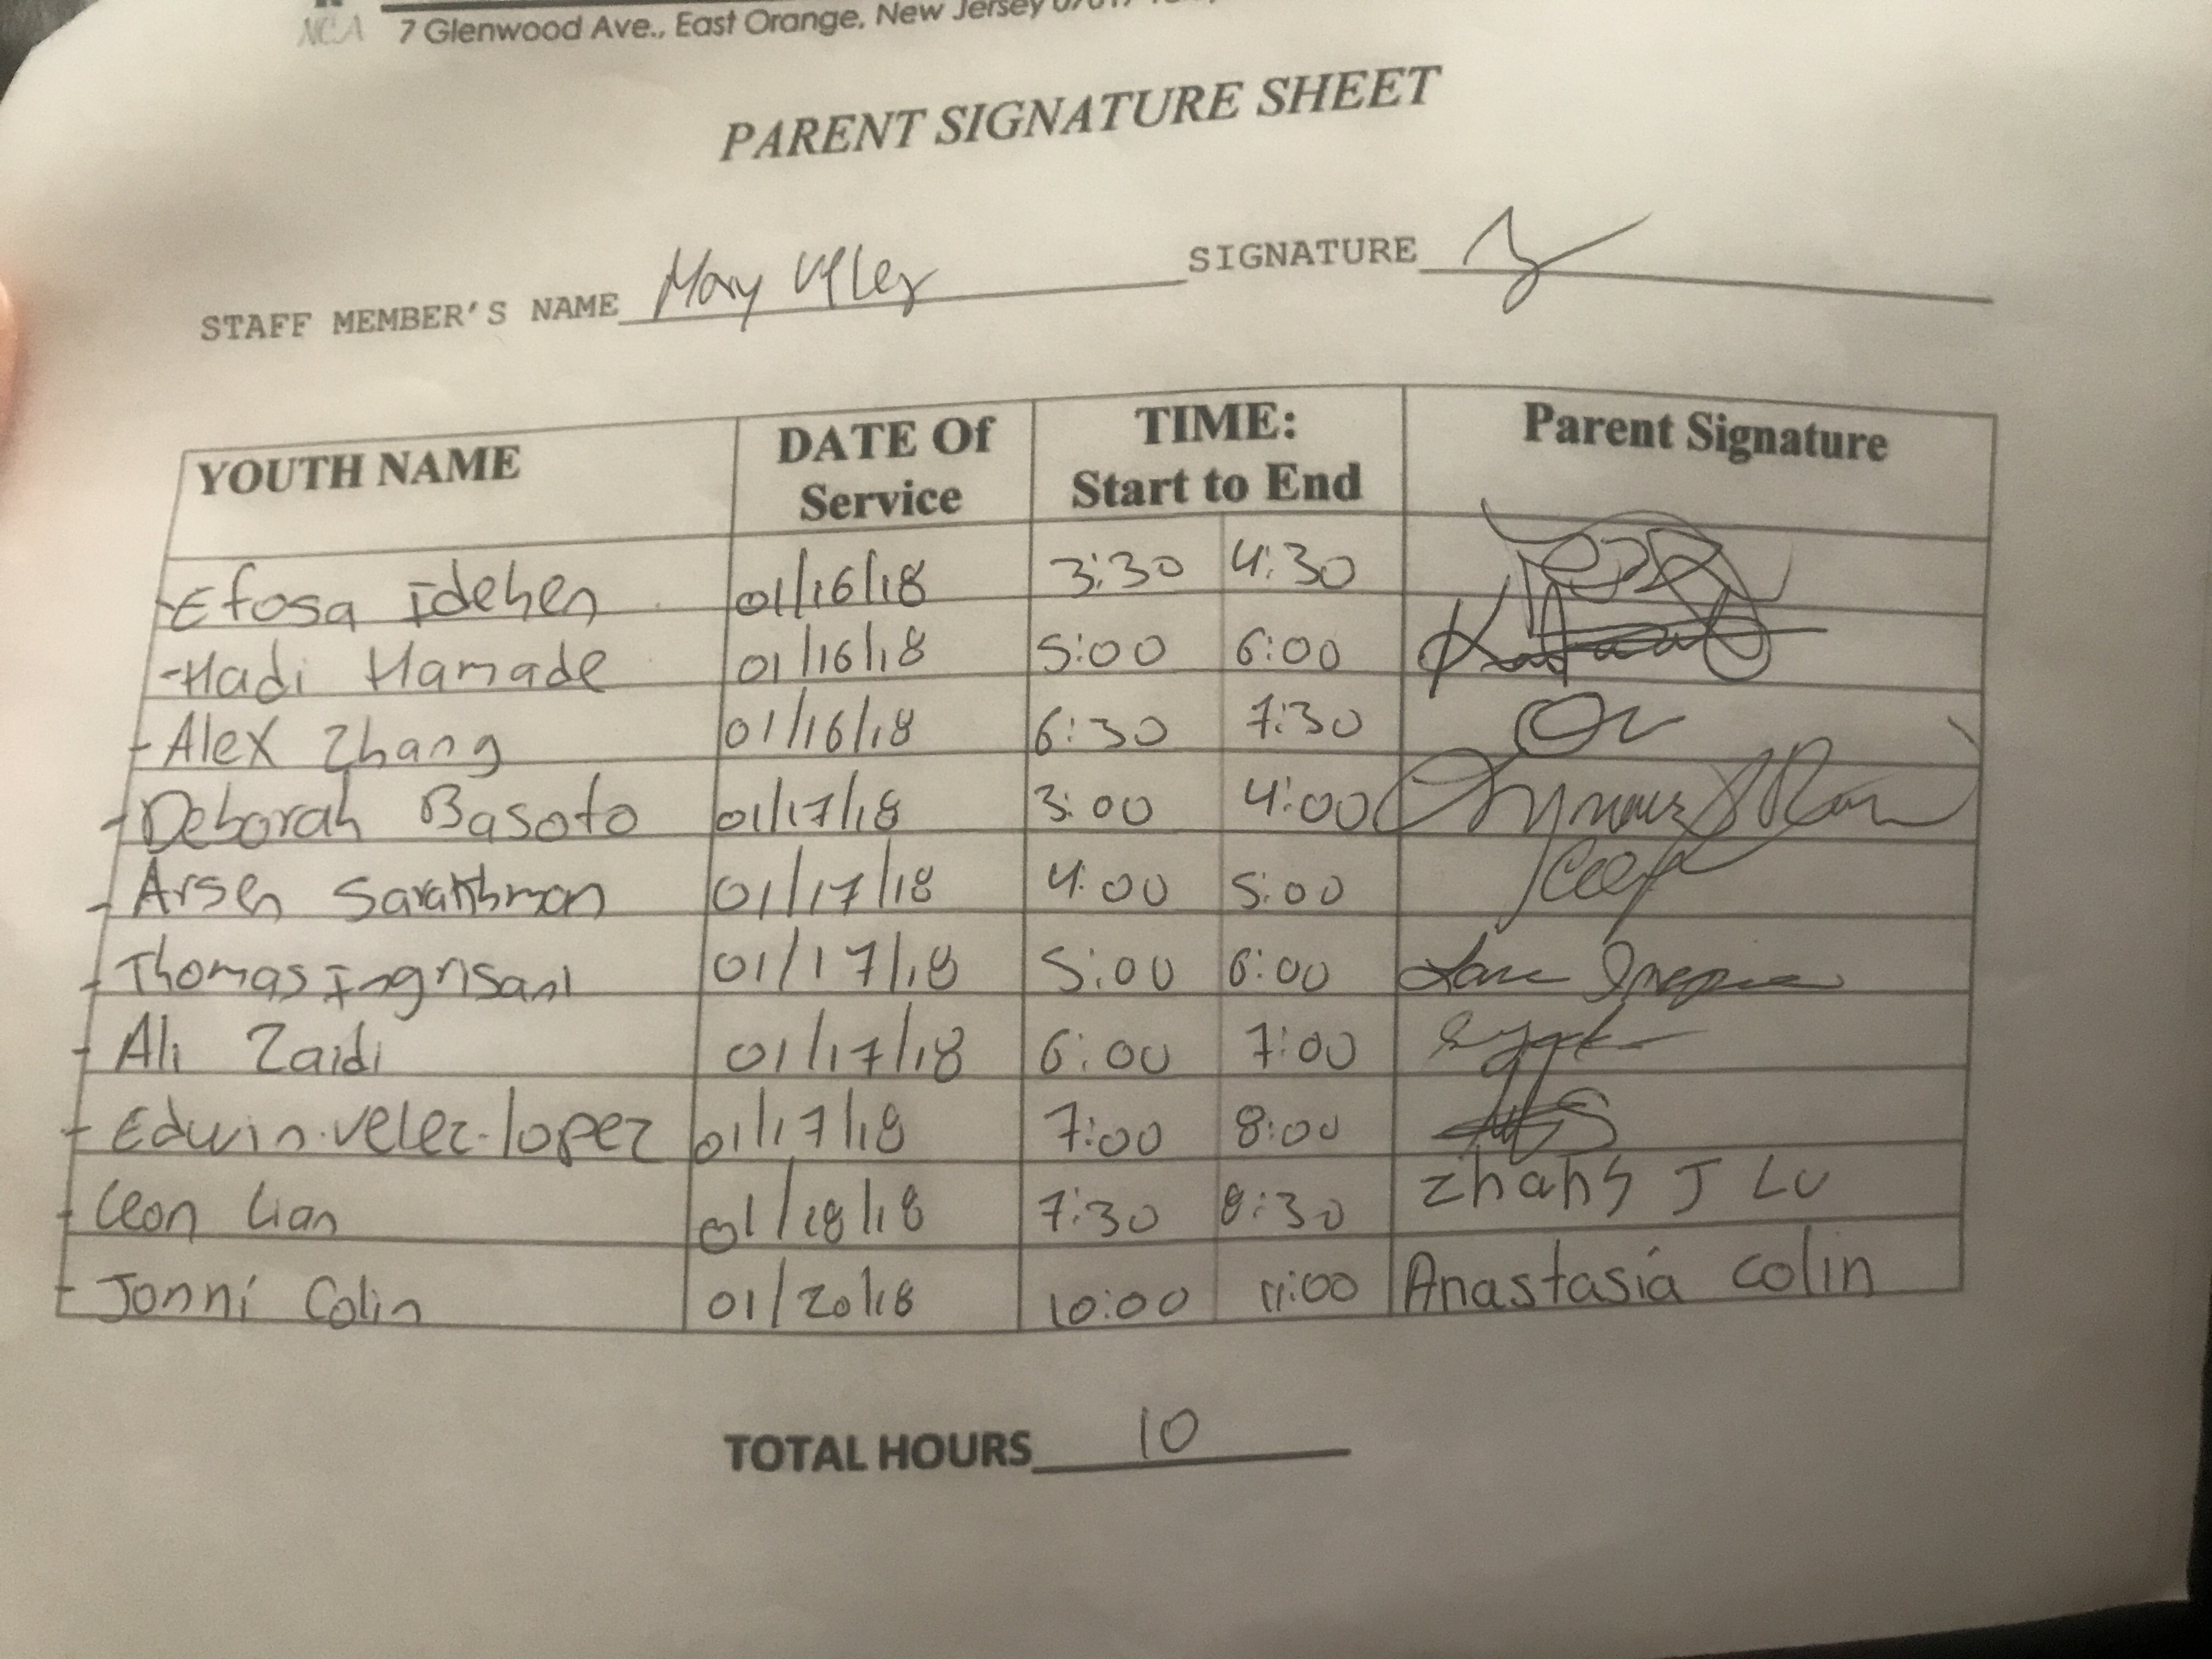 7 Glenwood Ave., East Orange, New Jersey
PARENT SIGNATURE SHEET
STAFF MEMBER'S NAME SIGNATURE
YOUTH NAME DATE Of Service TIME: Start to End Parent Signature
- Efosa Idehen 01/16/18 3:30 4:30
- Hadi Hamade 01/16/18 5:00 6:00
- Alex Zhang 01/16/18 6:30 7:30
- Deborah Basoto 01/17/18 3:00 4:00
- Arsen 01/17/18 4:00 5:00
- Thomas Ingrisani 01/17/18 5:00 6:00
- Ali Zaidi 01/17/18 6:00 7:00
- Edwin velez-lopez 01/17/18 7:00 8:00
- Leon 01/18/18 7:30 8:30
- Jonni Colin 01/20/18 10:00 11:00 Anastasia colin
TOTAL HOURS 10